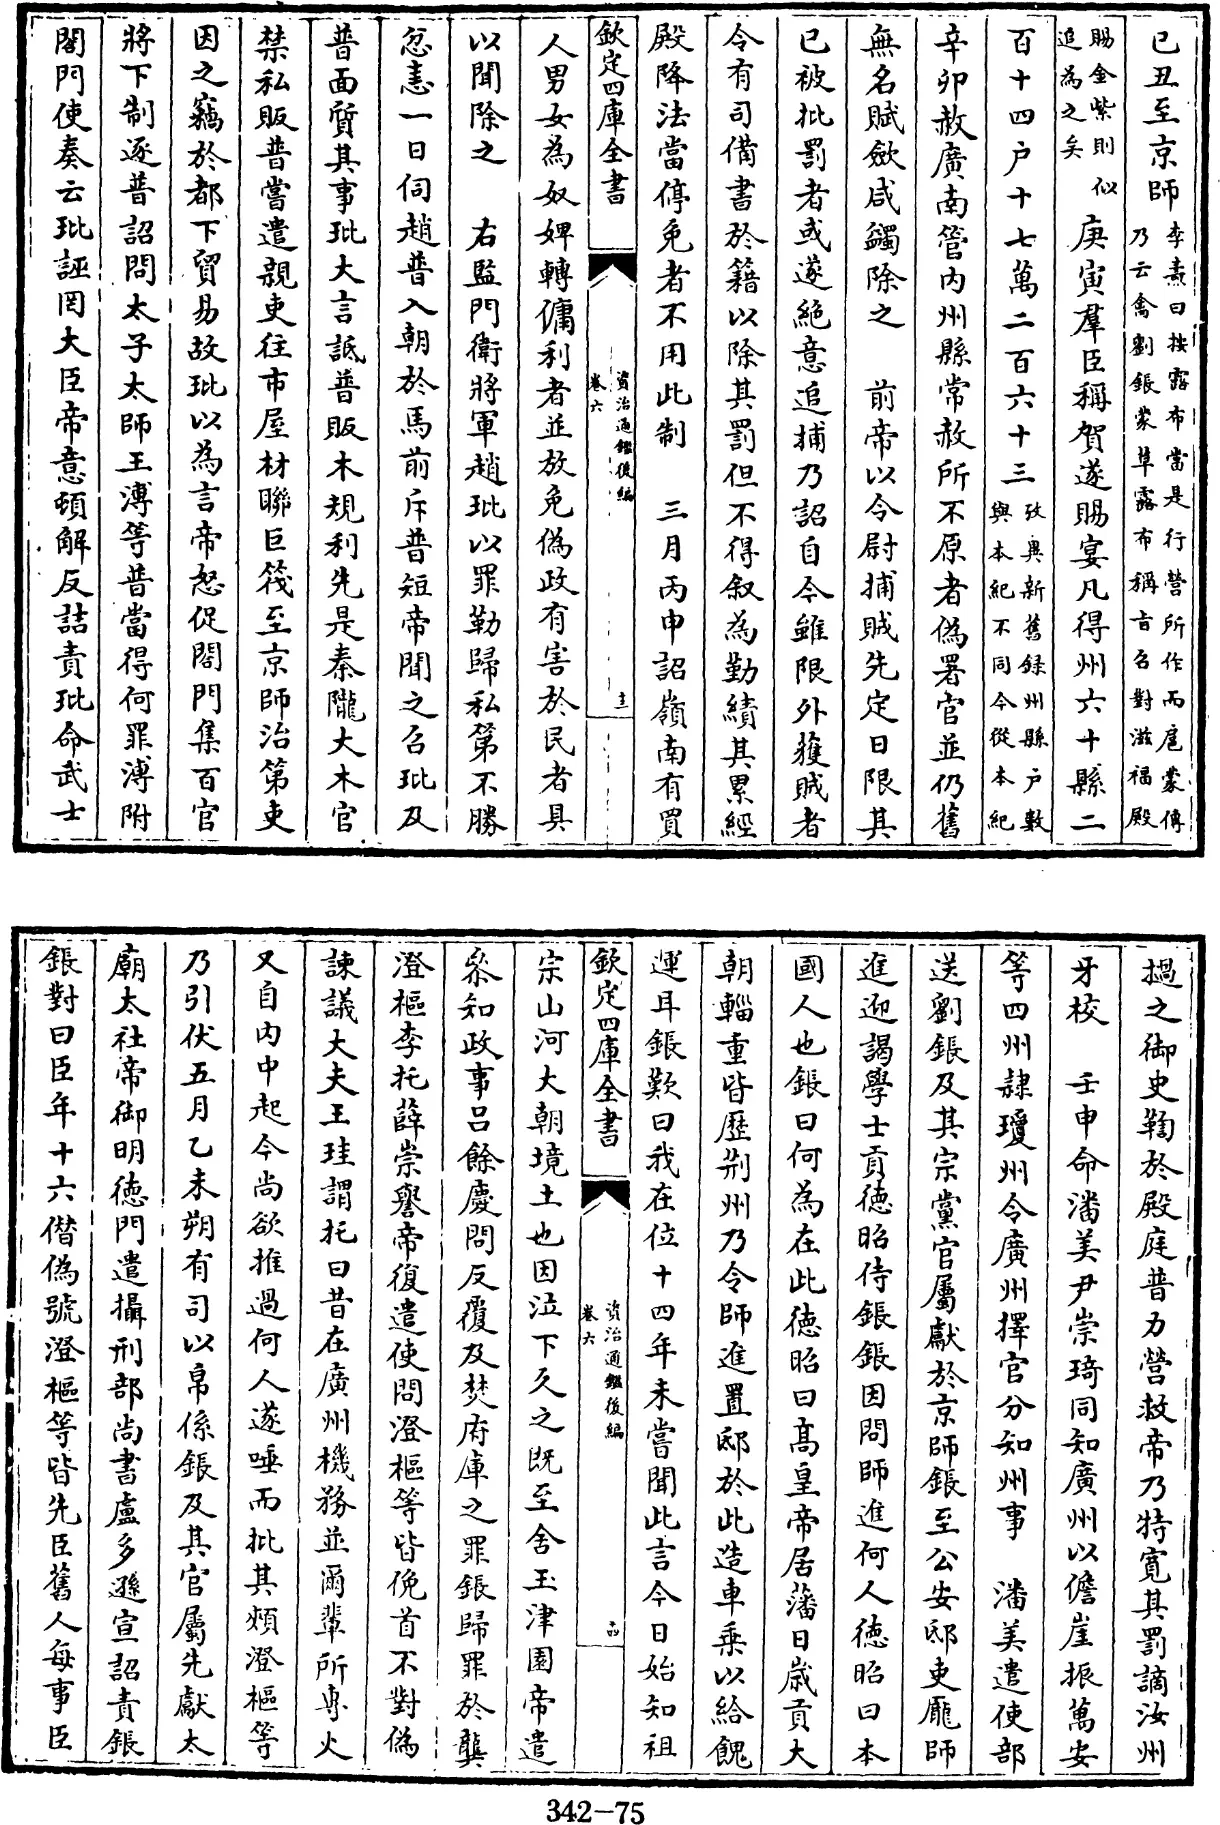 已丑至京師李燾曰按露布當是行營所作而扈蒙傳乃云禽劉鋹蒙草露布稱㫖召對滋福殿
賜金紫則似追為之矣 庚寅羣臣稱賀遂賜宴凡得州六十縣二
百十四户十七萬二百六十三攷異新舊録州縣户數與本紀不同今從本紀
辛卯赦廣南管内州縣常赦所不原者偽署官並仍舊
無名賦歛咸蠲除之 前帝以令尉捕賊先定日限其
已被批罰者或遂絶意追捕乃詔自今雖限外獲賊者
令有司備書於籍以除其罰但不得叙為勤績其累經
殿降法當停免者不用此制 三月丙申詔嶺南有買
欽定四庫全書 資治通鑑後編 卷六 十三
人男女為奴婢轉傭利者並放免偽政有害於民者具
以聞除之 右監門衛將軍趙玭以罪勒歸私第不勝
忿恚一日伺趙普入朝於馬前斥普短帝聞之召玭及
普面質其事玭大言詆普販木規利先是秦隴大木官
禁私販普嘗遣親吏往市屋材聯巨筏至京師治第吏
因之竊於都下貿易故玭以為言帝怒促閤門集百官
將下制逐普詔問太子太師王溥等普當得何罪溥附
閤門使奏云玭誣罔大臣帝意頓解反詰責玭命武士
撾之御史鞫於殿庭普力營救帝乃特寛其罰謫汝州
牙校 壬申命潘美尹崇琦同知廣州以儋崖振萬安
等四州隷瓊州令廣州擇官分知州事 潘美遣使部
送劉鋹及其宗黨官屬獻於京師鋹至公安邸吏龎師
進迎謁學士貢徳昭侍鋹鋹因問師進何人徳昭曰本
國人也鋹曰何為在此徳昭曰髙皇帝居藩日歳貢大
朝輜重皆歴荆州乃令師進置邸於此造車乗以給餽
運耳鋹歎曰我在位十四年未嘗聞此言今日始知祖
欽定四庫全書 資治通鑑後編 卷六 十四
宗山河大朝境土也因泣下久之既至舍玉津園帝遣
叅知政事吕餘慶問反覆及焚府庫之罪鋹歸罪於龔
澄樞李托薛崇譽帝復遣使問澄樞等皆俛首不對偽
諫議大夫王珪謂托曰昔在廣州機務並爾輩所専火
又自内中起今尚欲推過何人遂唾而批其頰澄樞等
乃引伏五月乙未朔有司以帛係鋹及其官屬先獻太
廟太社帝御明徳門遣攝刑部尚書盧多遜宣詔責鋹
鋹對曰臣年十六僭偽號澄樞等皆先臣舊人每事臣
342-75